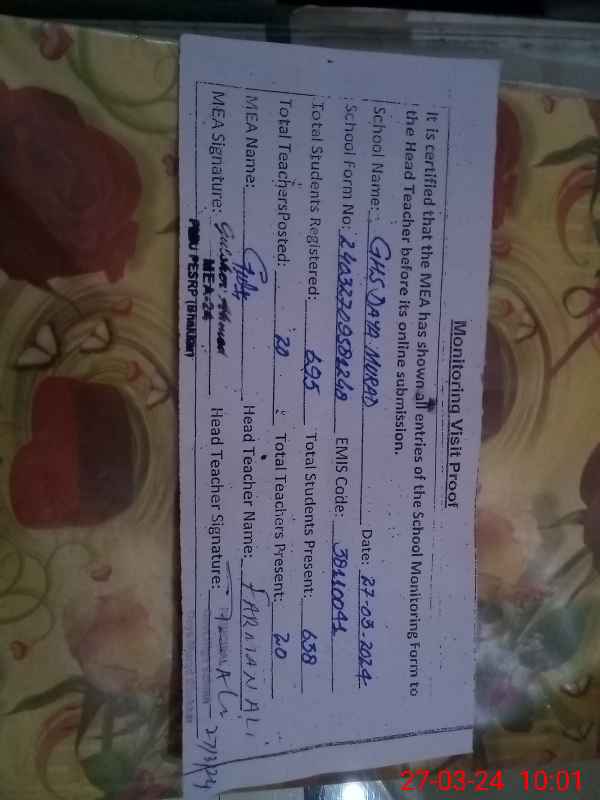 Monitoring Visit Proof
It is certified that the MEA has shown all entries of the School Monitoring Form to
the Head Teacher before its online submission.
School Name: GHS DAYA MURAD Date: 27-03-2024
School Form No: EMIS Code:
Total Students Registered: 695 Total Students Present: 638
Total TeachersPosted: 20 Total Teachers Present: 20
MEA Name: Head Teacher Name: FARMAN ALI
MEA Signature: Head Teacher Signature: 27/3/24
MEA-24
PESRP (Bhakkar)
27-03-24 10:01